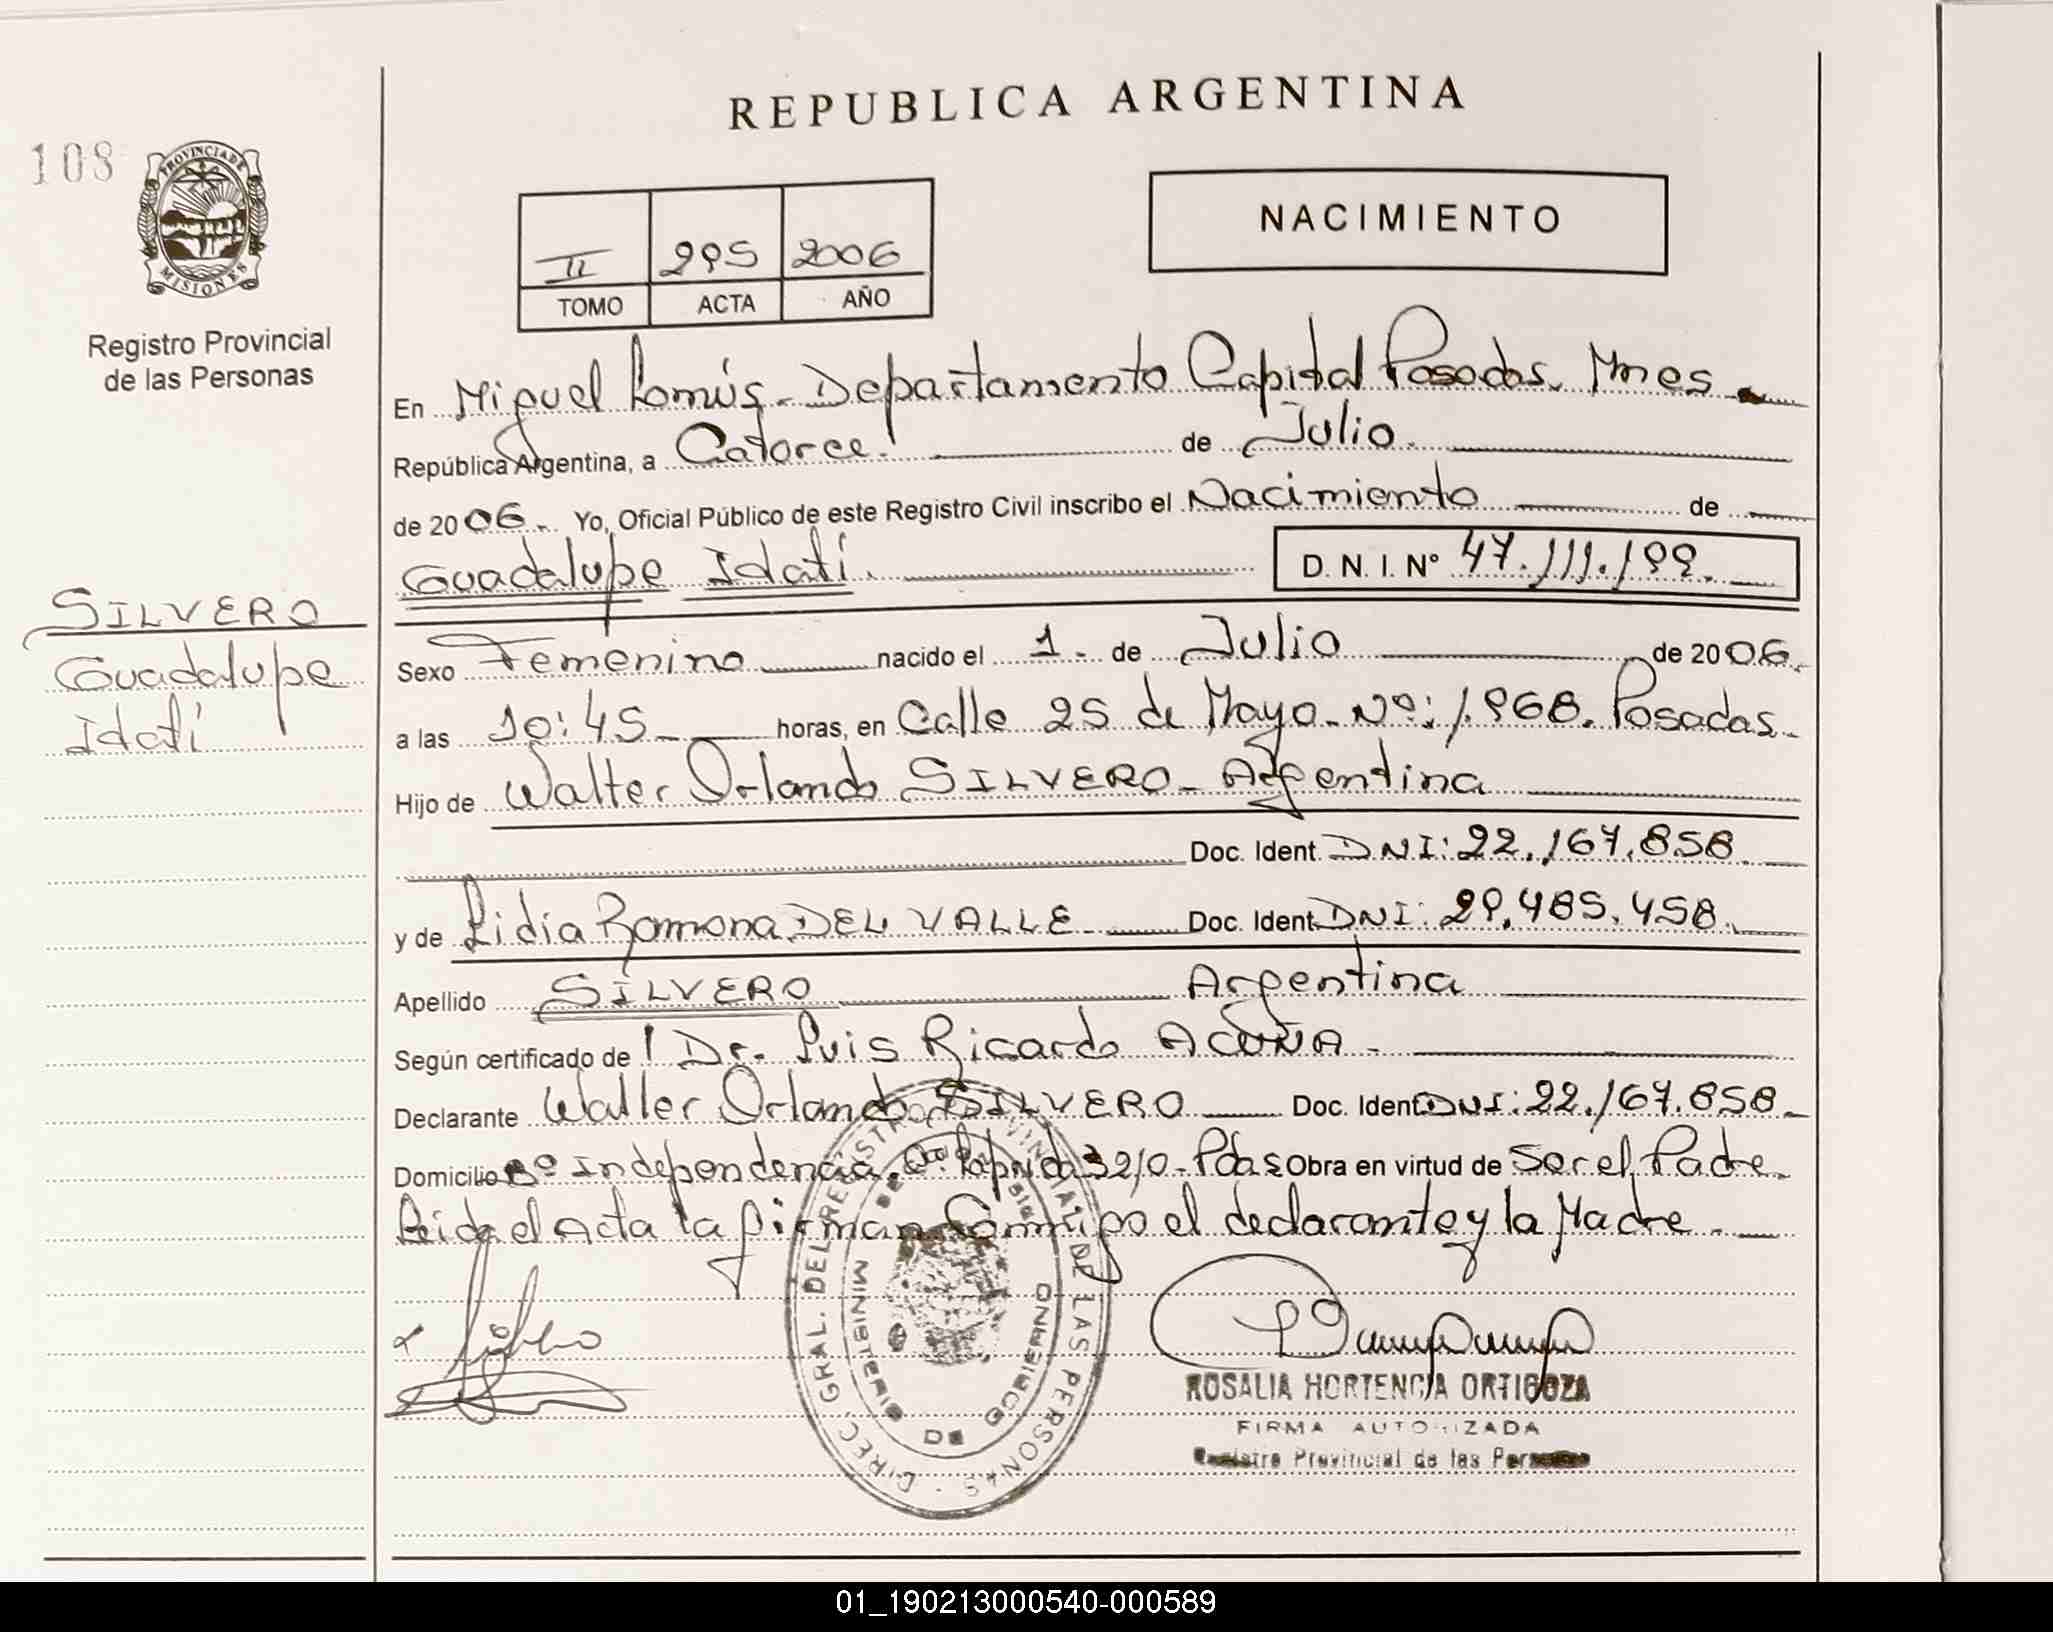 REPUBLICA ARGENTINA
108
PROVINCIA DE
MISIONES
Registro Provincial
de las Personas
NACIMIENTO
II 295 2006
TOMO ACTA AÑO
En Miguel Lanús. Departamento Capital Posadas. Mnes
República Argentina, a Catorce. de Julio.
de 2006. Yo, Oficial Público de este Registro Civil inscribo el Nacimiento de
Guadalupe Idatí. D. N. I. Nº 47.111.199.
SILVERO
Guadalupe
Idatí
Sexo Femenino nacido el 1. de Julio de 2006.
a las 10:45 horas, en Calle 25 de Mayo. Nº: 1.968. Posadas.
Hijo de Walter Orlando SILVERO - Argentina
Doc. Ident. DNI: 22.167.858.
y de Lidia Ramona DEL VALLE Doc. Ident. DNI: 29.485.458.
Apellido SILVERO Argentina
Según certificado de l Dr. Luis Ricardo ACUÑA -
Declarante Walter Orlando SILVERO Doc. Ident. DNI: 22.167.858
Domicilio Bº Independencia. Cª: Laprida 3210 - Pdas Obra en virtud de Ser el Padre.
Leida el Acta la firman Conmigo el declarante y la Madre.
DIREC. GRAL. DEL REGISTRO PROVINCIAL DE LAS PERSONAS
MINISTERIO DE GOBIERNO
ROSALIA HORTENCIA ORTIGOZA
FIRMA AUTORIZADA
Registro Provincial de las Personas
01_190213000540-000589